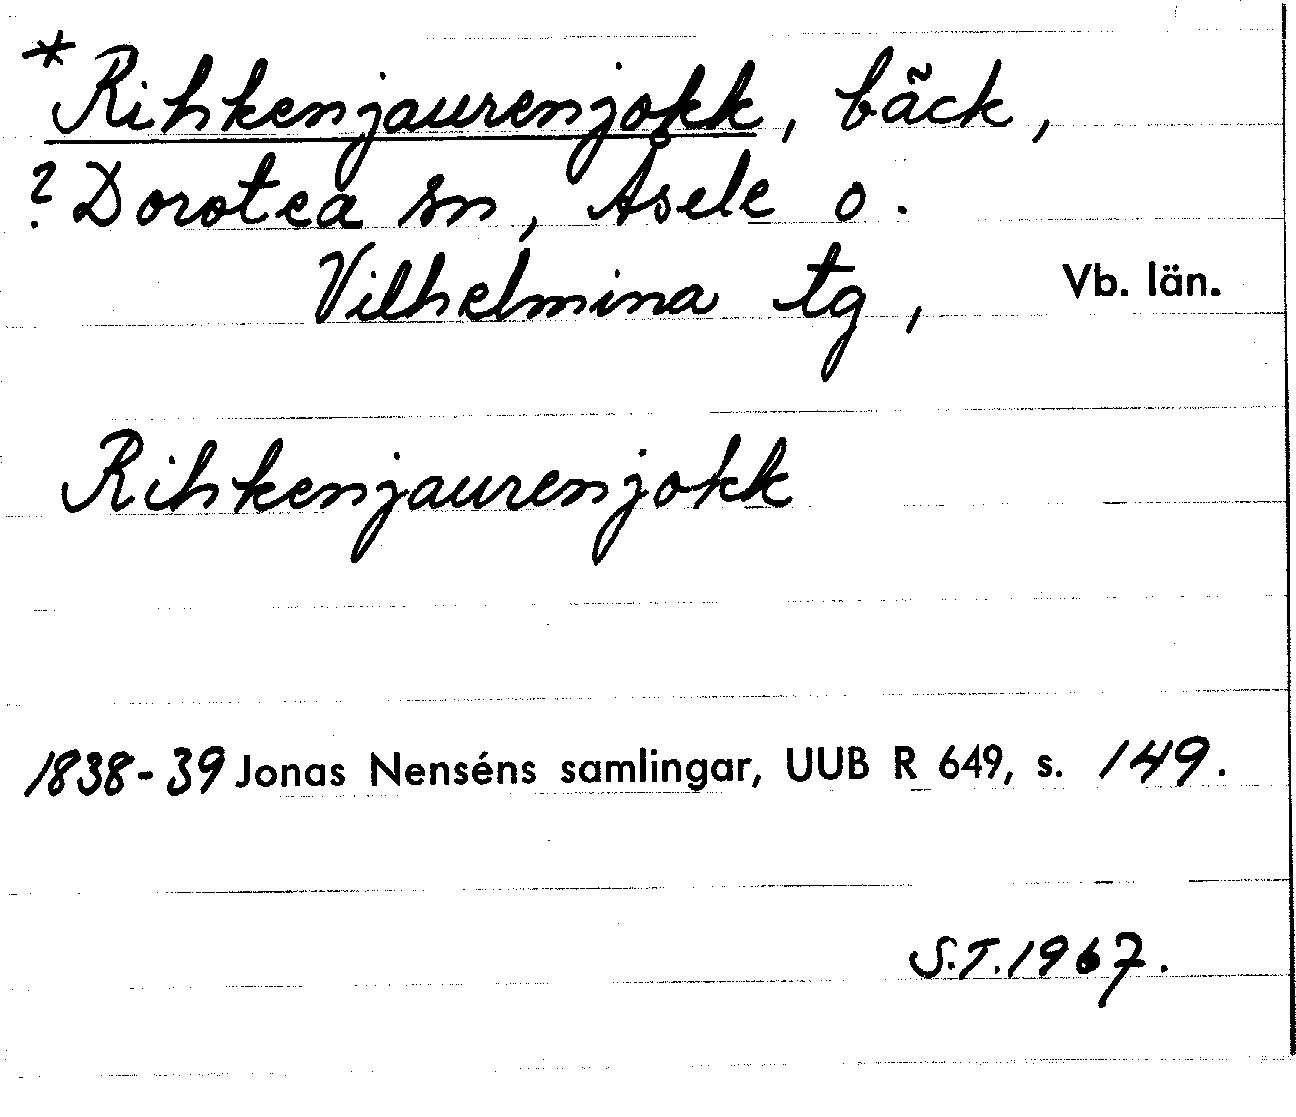 *Rihkenjaurenjokk, bäck,
? Dorotea sn, Åsele o.
Vilhelmina tg, Vb. län.
Rihkenjaurenjokk
1838-39 Jonas Nenséns samlingar, UUB R 649, s. 149.
S.T. 1967.